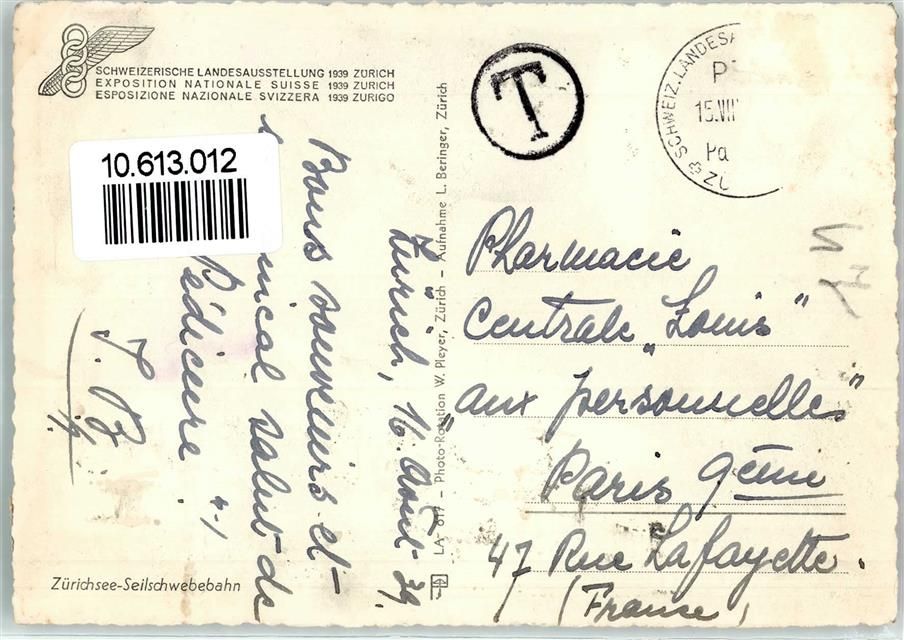 SCHWEIZERISCHE LANDESAUSSTELLUNG 1939 ZÜRICH
EXPOSITION NATIONALE SUISSE 1939 ZURICH
ESPOSIZIONE NAZIONALE SVIZZERA 1939 ZURIGO
10.613.012
T
SCHWEIZ. LANDESA
15.VIII
Pa
ZÜ
Zürich, 16. Août 39.
Bons souvenirs et
amical salut de
Pédicure
J. B.
Zürichsee-Seilschwebebahn
LA 617 – Photo-Rotation W. Pleyer, Zürich – Aufnahme L. Beringer, Zürich
Pharmacie
Centrale „Louis"
„aux personnelles"
Paris 9ème
47 Rue Lafayette.
(France)